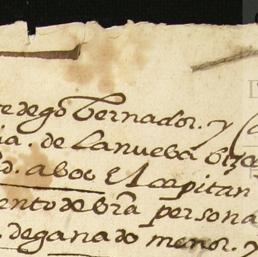 te de go bernador. y Ca
ia. de La nueba bizc
d. a bos El capitan
ento de bra persona
. de ganado menor. y